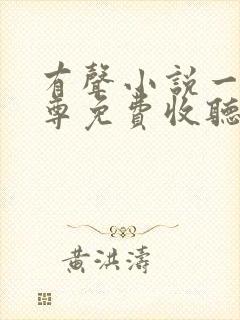 有聲小說一
尊免費收聽
黃洪濤